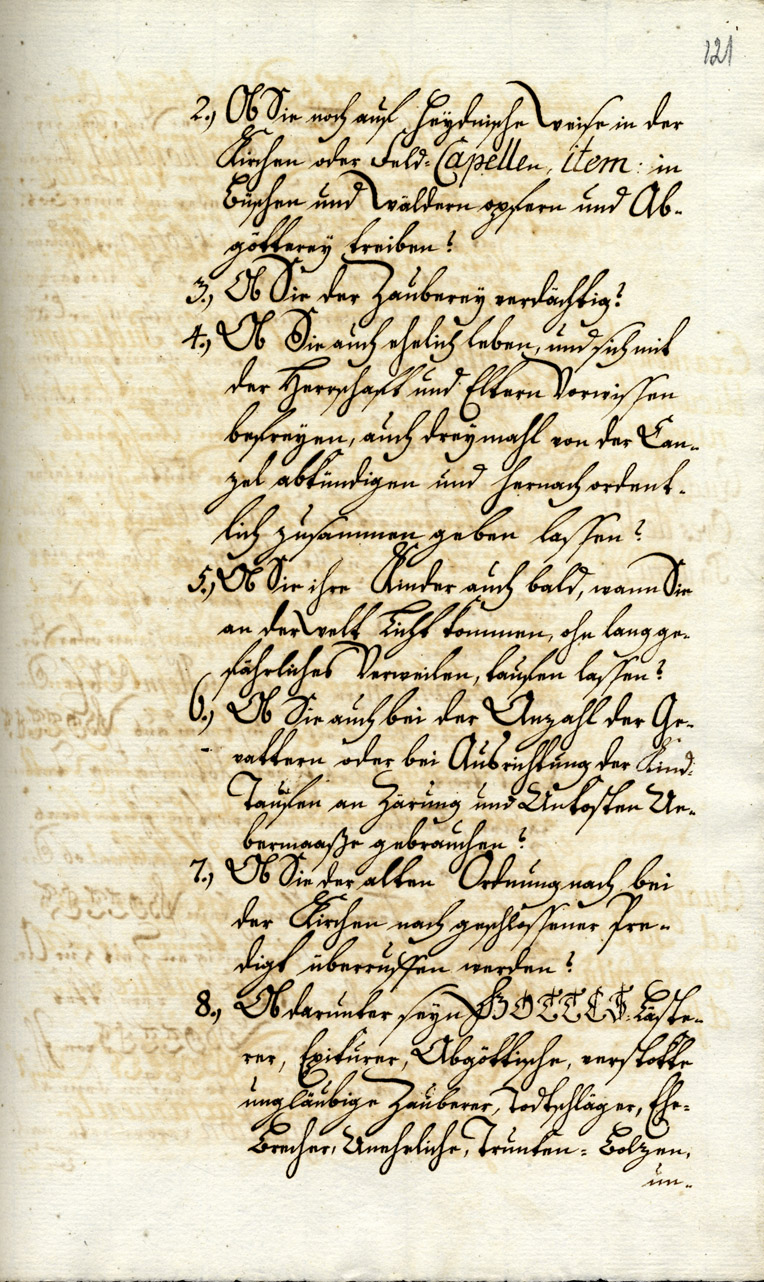 121
2., Ob Sie noch auf Heydnische Weise in der
Kirchen oder Feld-Capellen, item: in
Büschen und Wäldern opfern und Ab-
götterey treiben?
3., Ob Sie der Zauberey verdächtig?
4., Ob Sie auch ehelich leben, und sich mit
der Herrschaft und Eltern Vorwissen
befreyen, auch dreymahl von der Can-
zel abkündigen und hernach ordent-
lich zusammen geben lassen?
5., Ob Sie ihre Kinder auch bald, wann Sie
an der Welt Licht kommen, ohn lang ge-
fährliches Verweilen, taufen lassen?
6., Ob Sie auch bei der Anzahl der Ge-
vattern oder bei Ausrichtung der Kind-
Taufen an Zärung und Unkosten Ue-
bermaaße gebrauchen?
7., Ob Sie der alten Ordnung nach bei
der Kirchen nach geschlossener Pre-
digt überruffen werden?
8., Ob darunter seyn GOTTES-Läste-
rer, Epikurer, Abgöttische, verstokte
ungläubige Zauberer, Todtschläger, Ehe-
Brecher, Unehrliche, Trunken-Bolzen,
un-